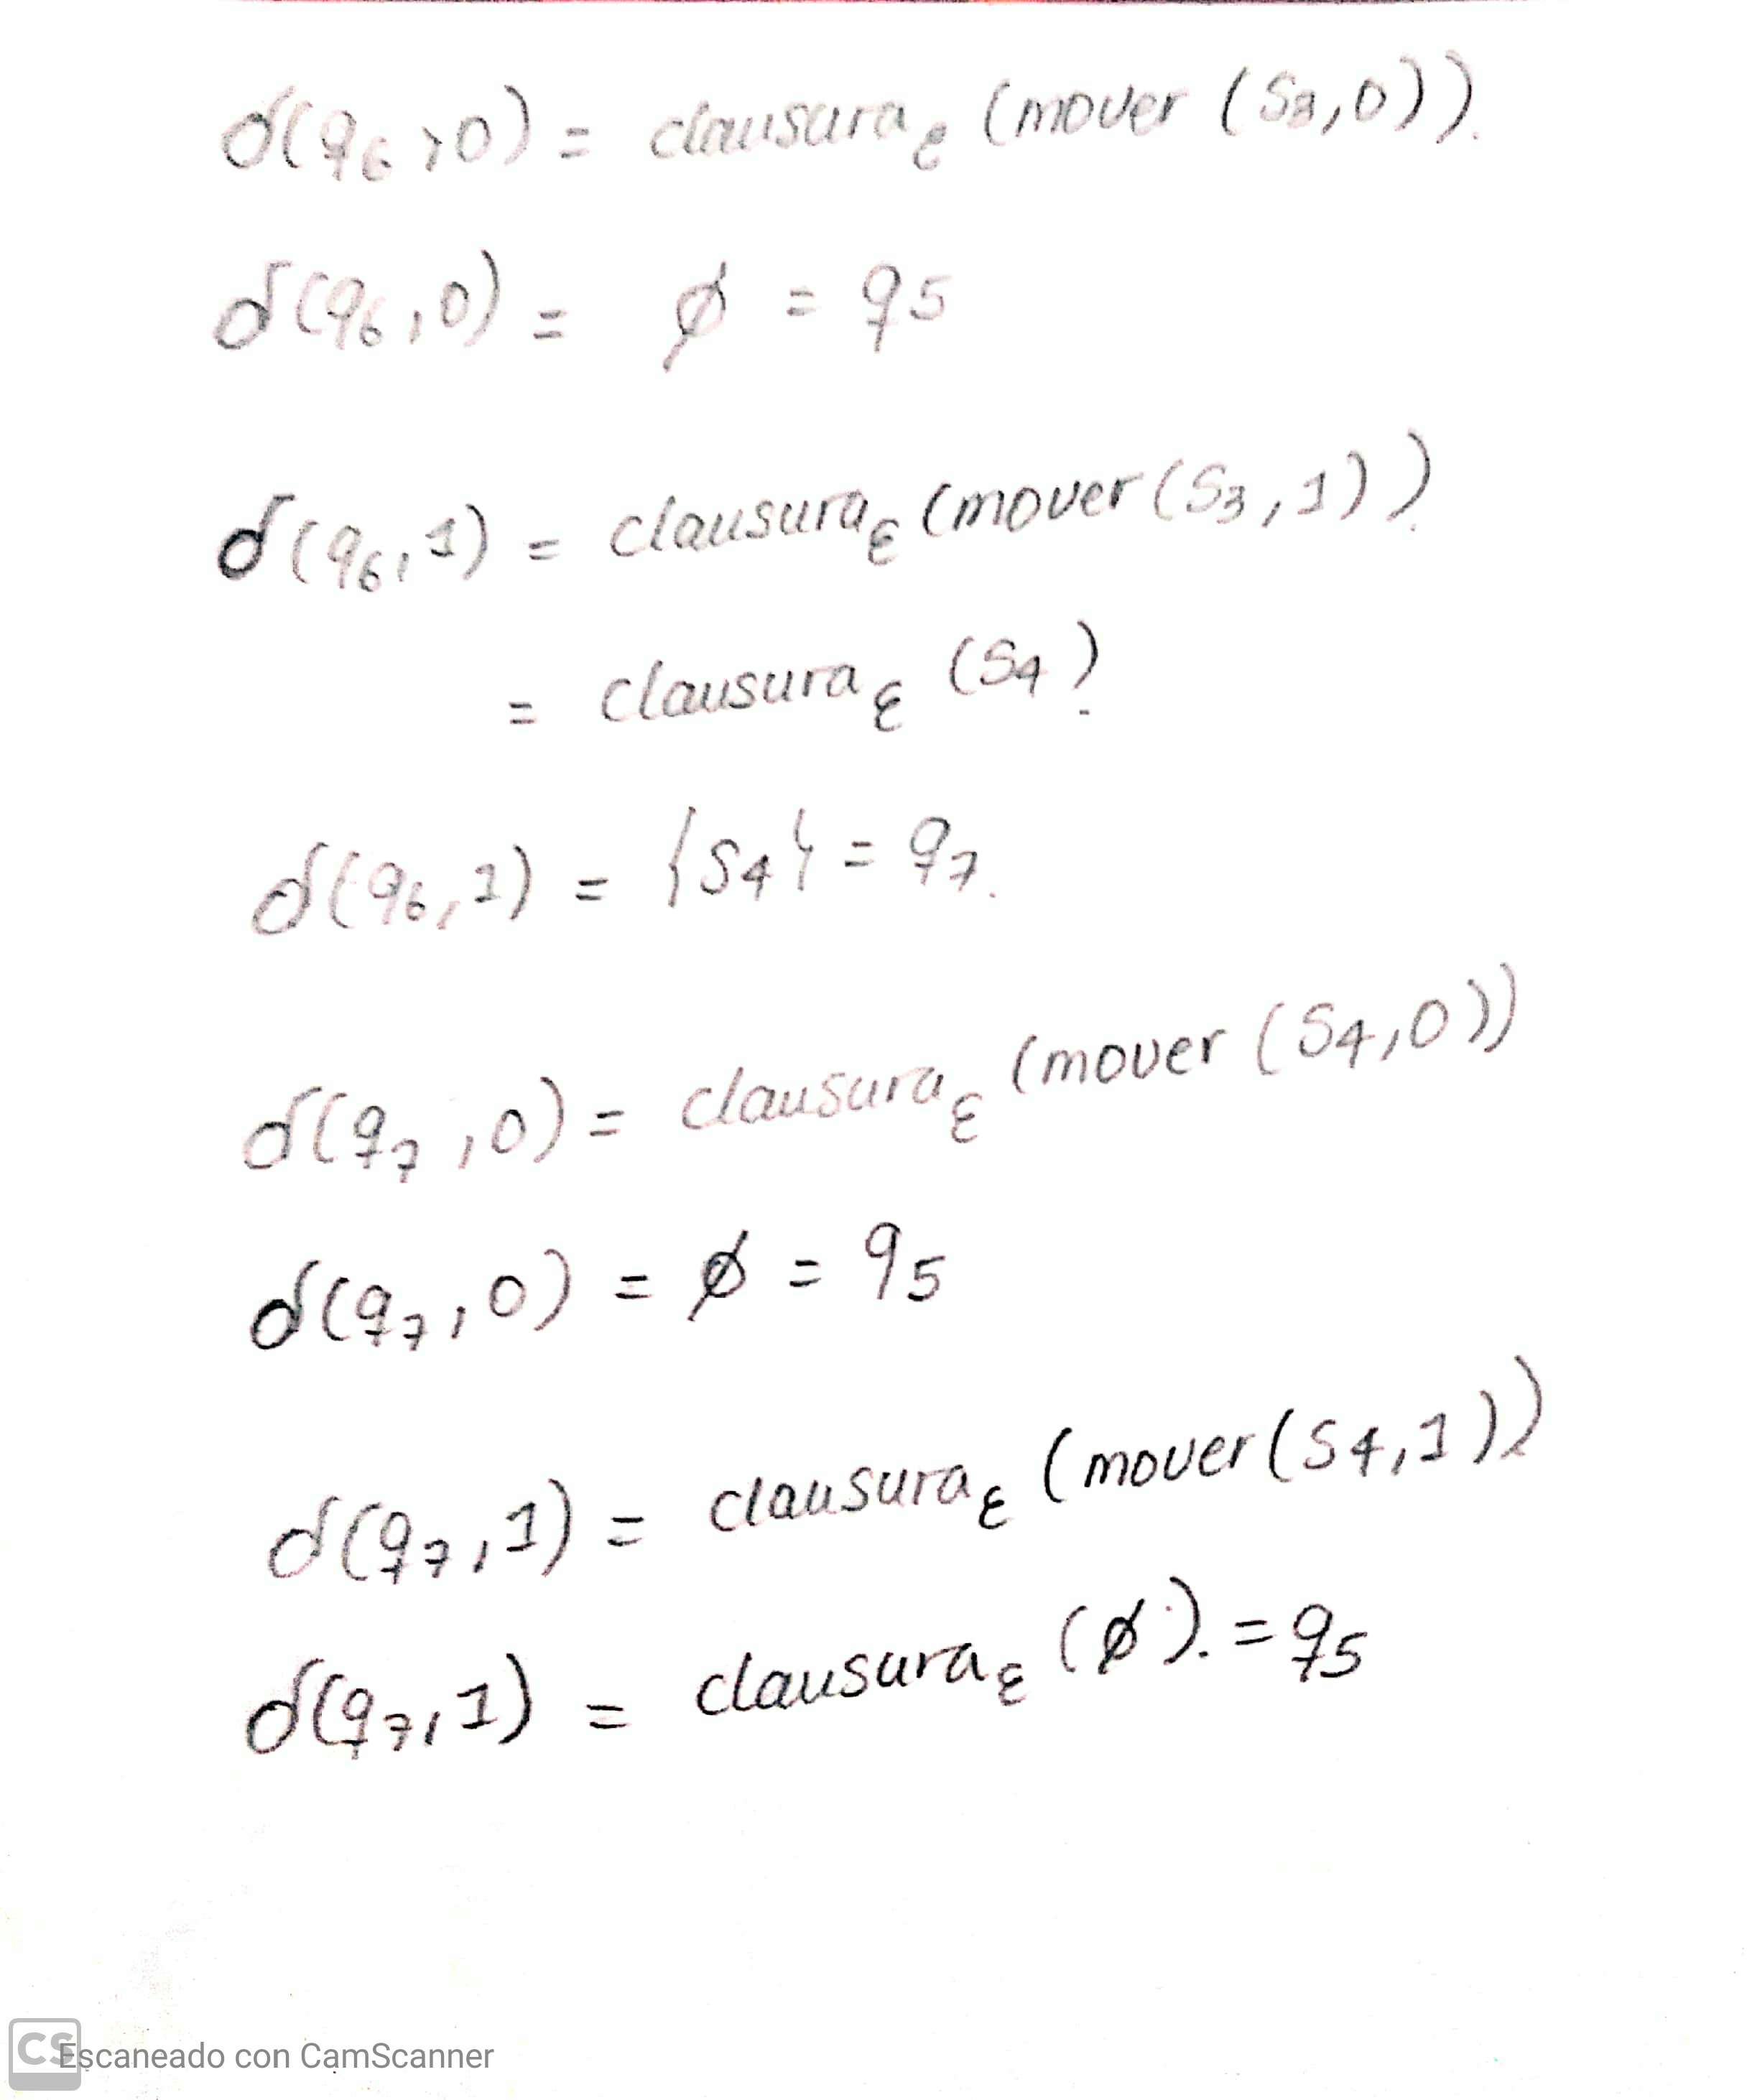 δ(q₆,0) = clausura ε (mover (S₃,0)).
δ(q₆,0) = ∅ = q₅
δ(q₆,1) = clausura ε (mover (S₃,1)).
= clausura ε (S₄).
δ(q₆,1) = {S₄} = q₇.
δ(q₇,0) = clausura ε (mover (S₄,0))
δ(q₇,0) = ∅ = q₅
δ(q₇,1) = clausura ε (mover (S₄,1))
δ(q₇,1) = clausura ε (∅). = q₅
CS Escaneado con CamScanner